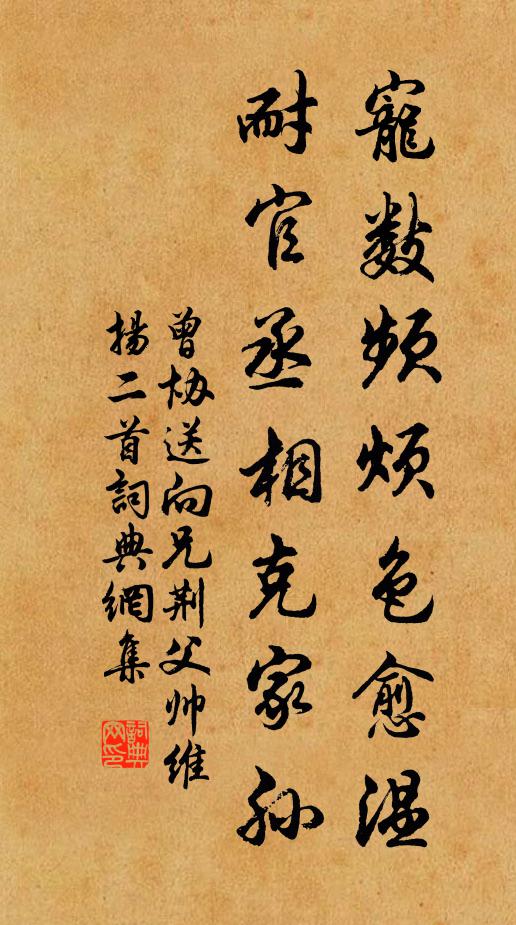 寵数頻煩色愈温
耐官丞相克家孙
曾协送向兄荆父帅维
揚二首詞典網集
詞典網印